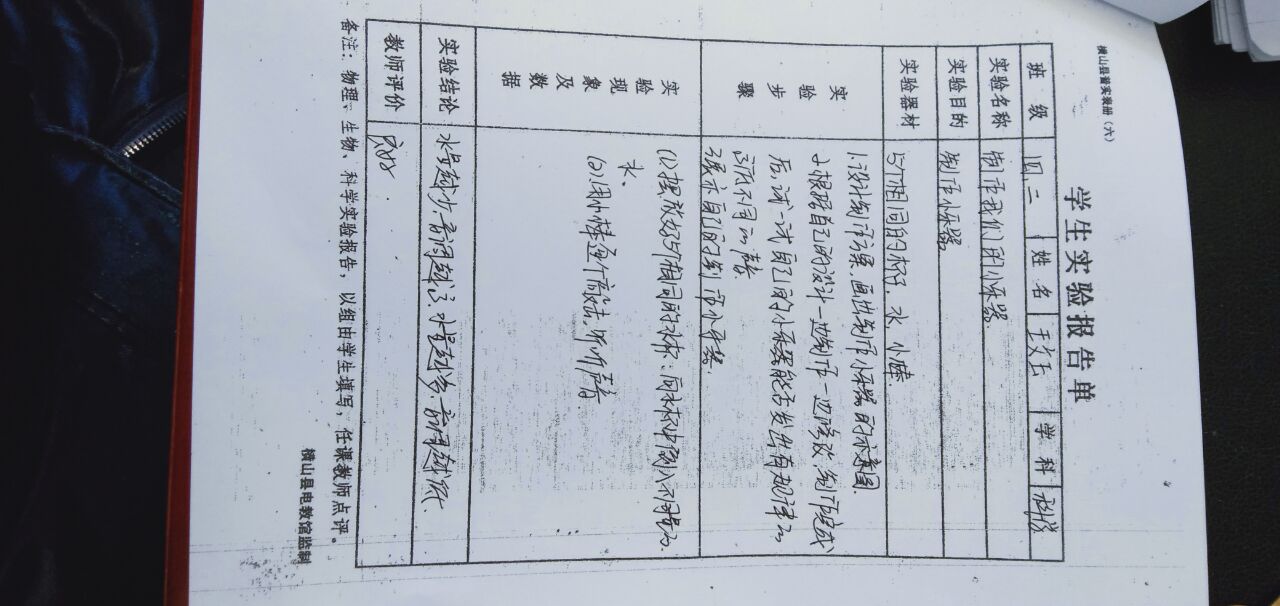 横山县蓄实表册（六）
学生实验报告单
班 级 四二 姓 名 王文玉 学 科 科学
实验名称 制作我们的小乐器
实验目的 制作小乐器
实验器材 5个相同的杯子、水、小棒.
实验步骤 1.设计制作方案,画出制作小乐器的示意图.
2.根据自己的设计一边制作一边修改,制作完成
后,试一试自己的小乐器能否发出有规律的
高低不同的声音.
3.展示自己的制作小乐器.
实验现象及数据 (1).摆放好5个相同的水杯;向水杯中倒入不同量的
水、
(2).用小棒逐个敲击,听听声音
实验结论 水量越少,音调越高.水量越多,音调越低.
教师评价
备注：物理、生物、科学实验报告，以组由学生填写，任课教师点评。
横山县电教馆监制